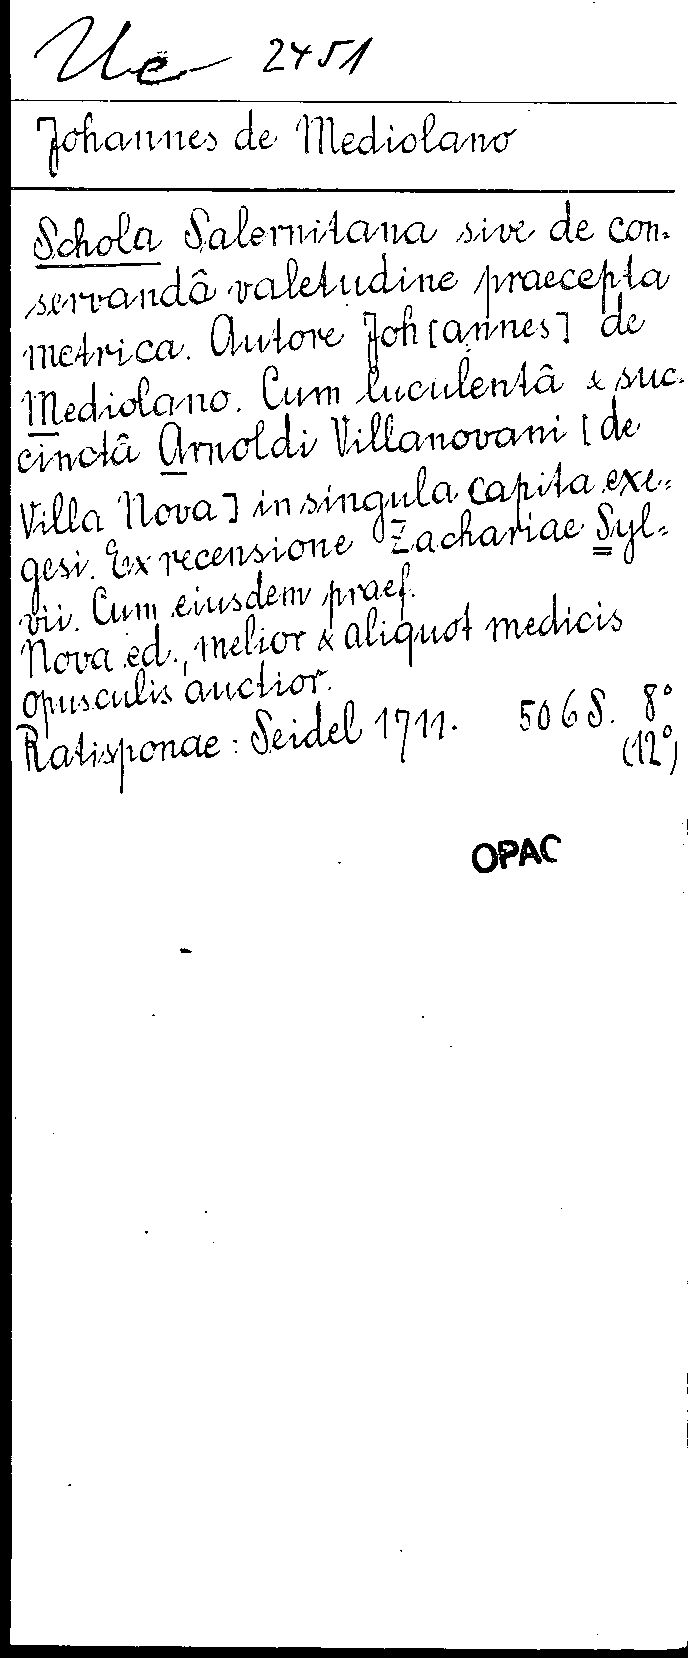 Ue 2451
Johannes de Mediolano
Schola Salernitana sive de con-
servandâ valetudine praecepta
metrica. Autore Joh[annes] de
Mediolano. Cum luculentâ & suc-
cinctâ Arnoldi Villanovani [de
Villa Nova] in singula capita exe-
gesi. Ex recensione Zachariae Syl-
vii. Cum eiusdem praef.
Nova ed., melior & aliquot medicis
opusculis auctior.
Ratisponae: Seidel 1711. 506 S. 8°
(12°)
OPAC